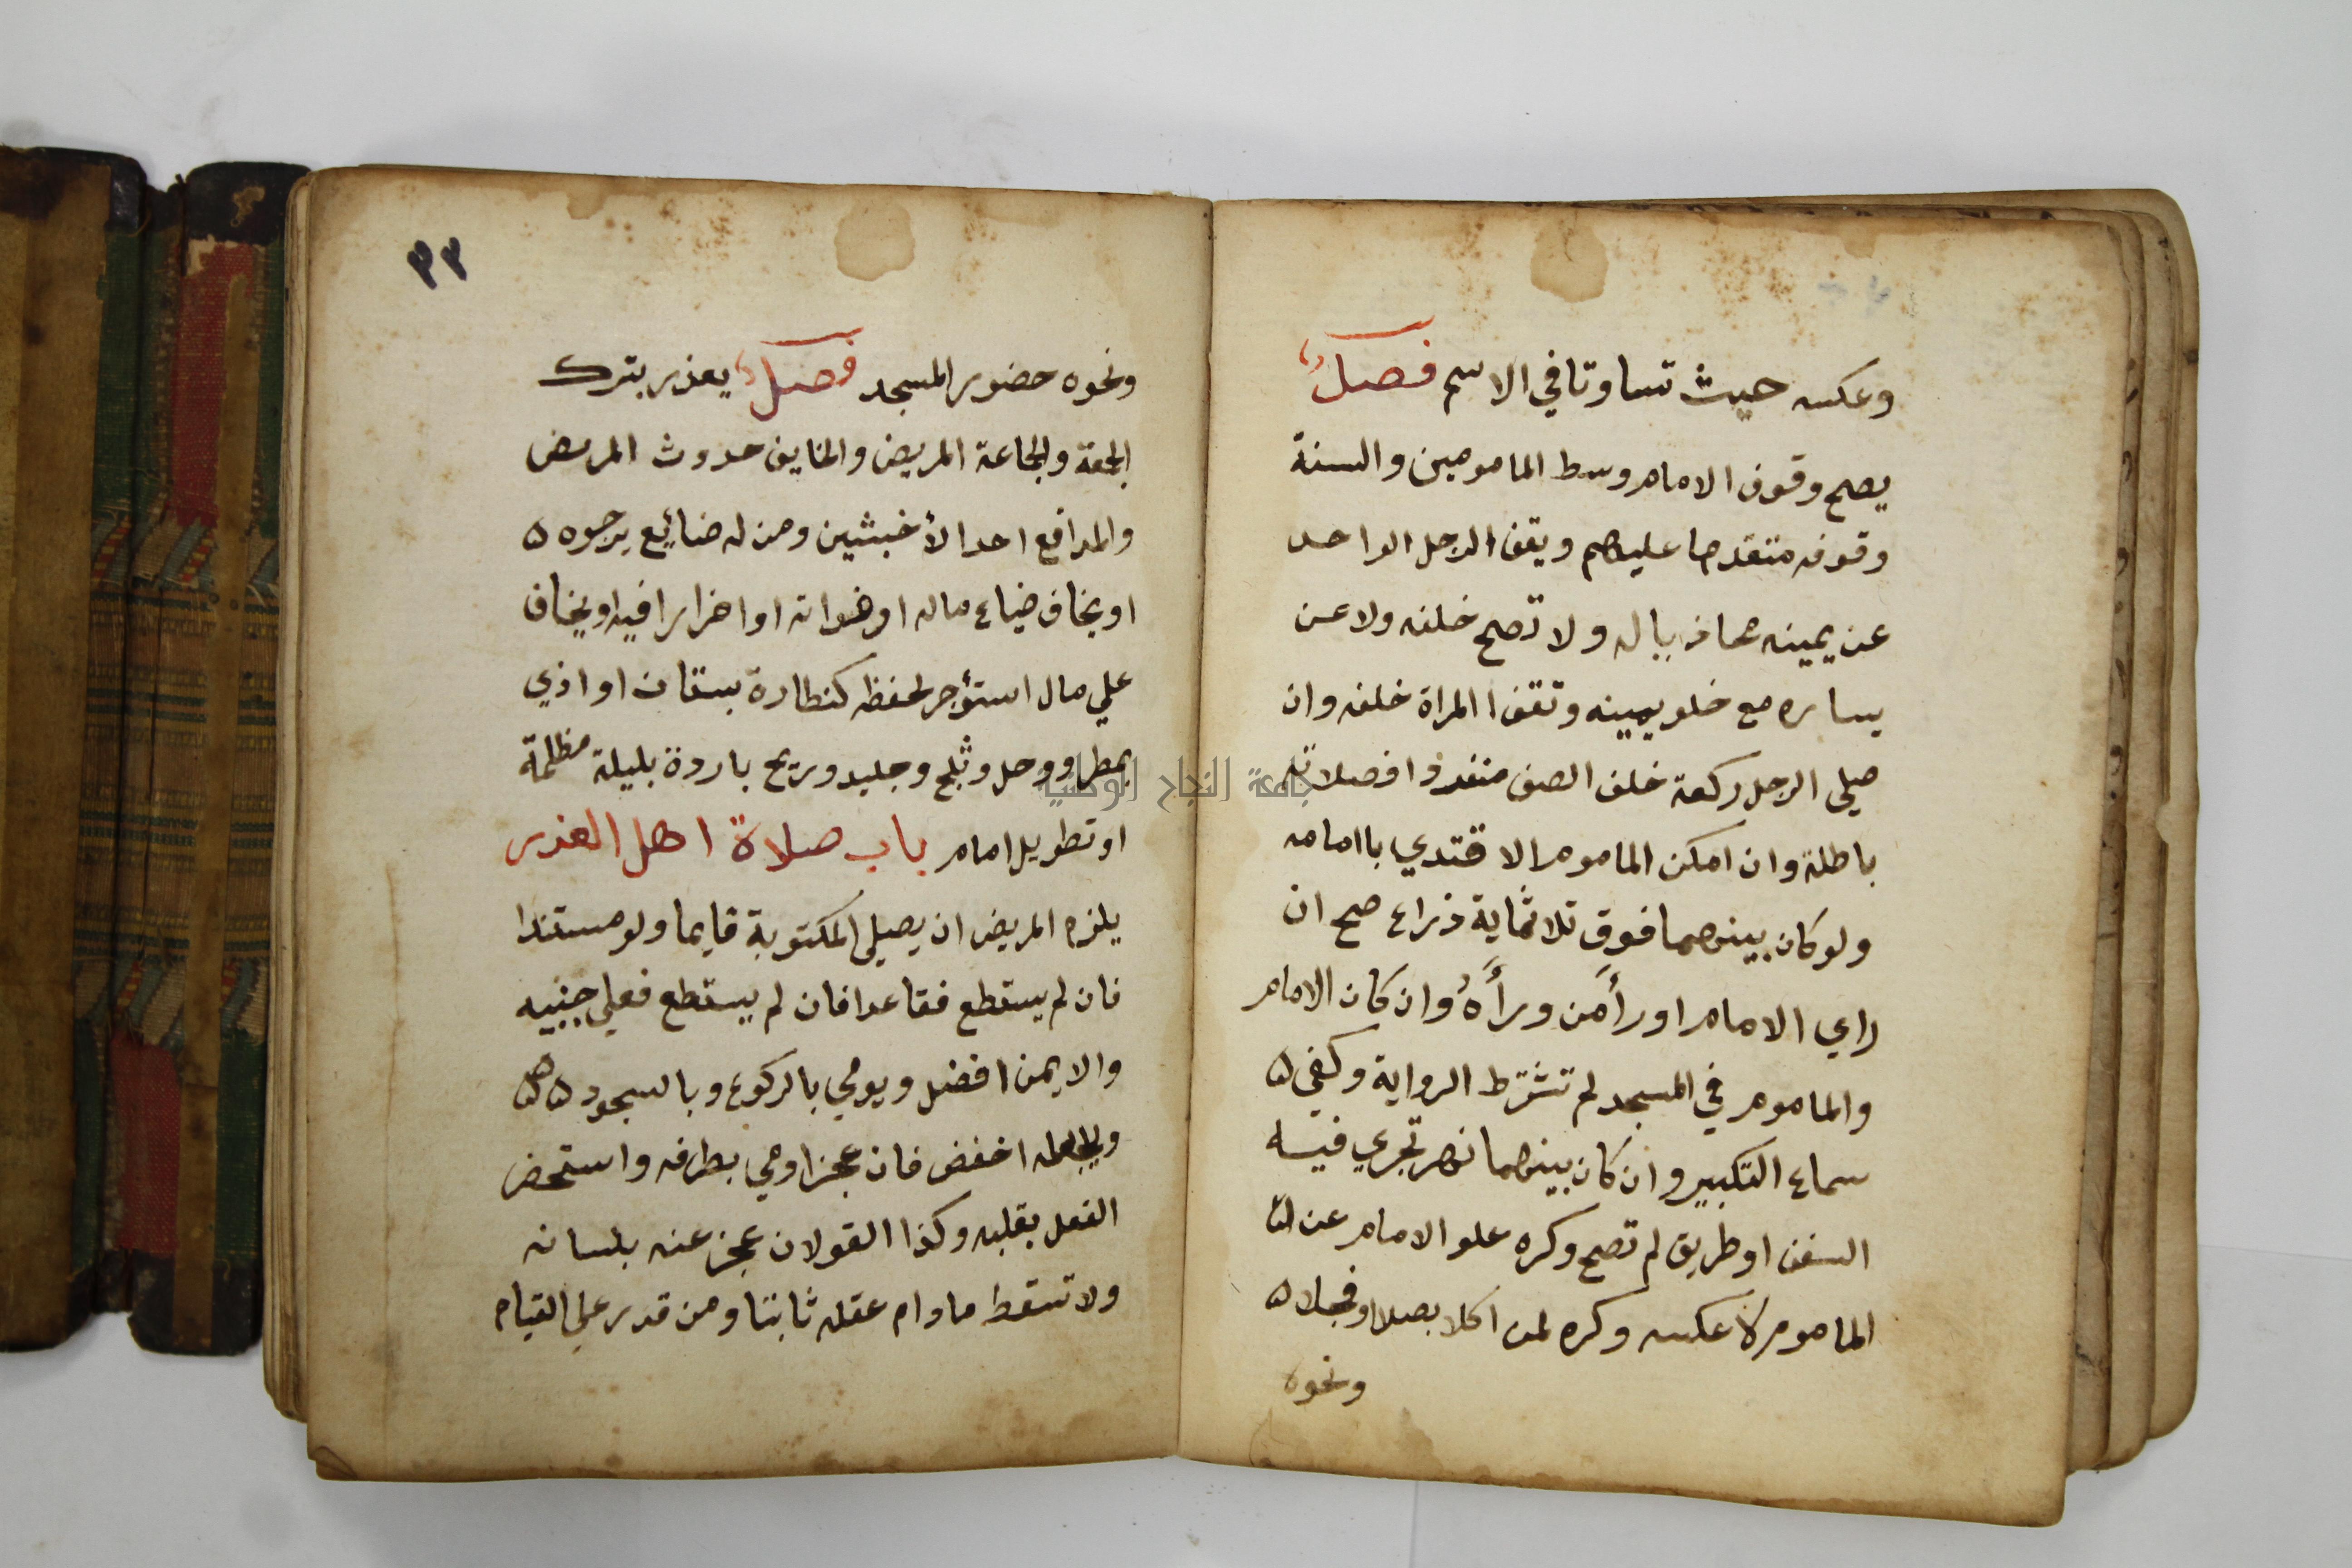 وعكسه حيث تساوتا في الاسم فصل
يصح وقوف الامام وسط المامومين والسنة
وقوفه متقدما عليهم ويقف الرجل الواحد
عن يمينه محاذيا له ولا تصح خلفه ولا عن
يساره مع خلو يمينه وتقف المراة خلفه وان
صلي الرجل ركعة خلف الصف منفردا فصلاته
باطلة وان امكن الماموم الاقتدي باامامه
ولو كان بينهما فوق ثلاثماية ذراع صح ان
راي الامام او رأ من ورأه وان كان الامام
والماموم في المسجد لم تشترط الرواية وكفي ه
سماع التكبير وان كان بينهما نهر تجري فيه
السفن او طريق لم تصح وكره علو الامام عن
الماموم لا عكسه وكره لمن اكلا بصلا او فجلا ه
ونحوه
٣٣
ونحوه حضور المسجد فصل يعذر بترك
الجمعة والجماعة المريض والخايف حدوث المرض
والمدافع احد الأخبثين ومن له ضائع يرجوه ه
او يخاف ضياع ماله او فواته او اضرارا فيه او يخاف
علي مال استؤجر لحفظه كنطارة بستان او اذي
بمطر ووحل وثلج وجليد وريح باردة بليلة مظلمة
او تطويل امام باب صلاة اهل العذر
يلزم المريض ان يصلي المكتوبة قايما ولو مستندا
فان لم يستطع فقاعدا فان لم يستطع فعلي جنبيه
والايمن افضل ويومي بالركوع وبالسجود ه ه ه
ويجعله اخفض فان عجز اومي بطرفه واستحضر
الفعل بقلبه وكذا القول ان عجز عنه بلسانه
ولا تسقط مادام عقله ثابتا ومن قدر علي القيام
جامعة النجاح الوطنية